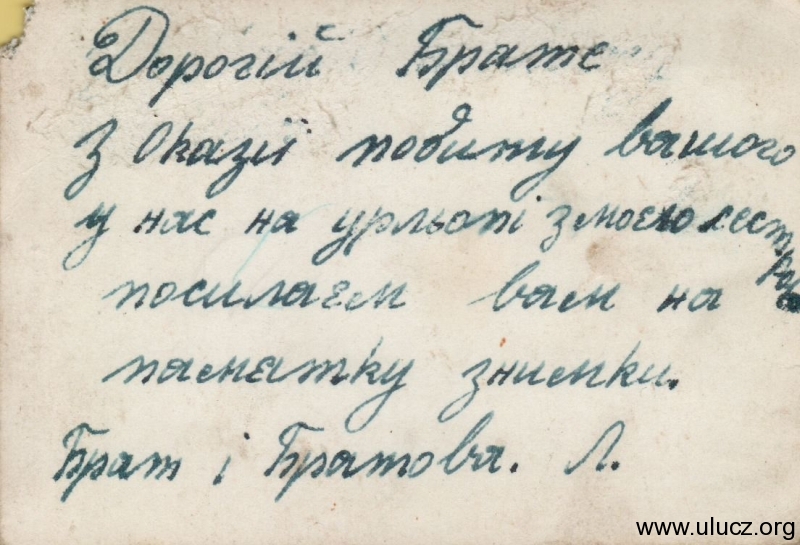 Дорогій Брате
З Оказії побиту вашого
у нас на урльопі з моєю сестрою
посилаєм вам на
памнятку знимки.
Брат і Братова. Л.
www.ulucz.org